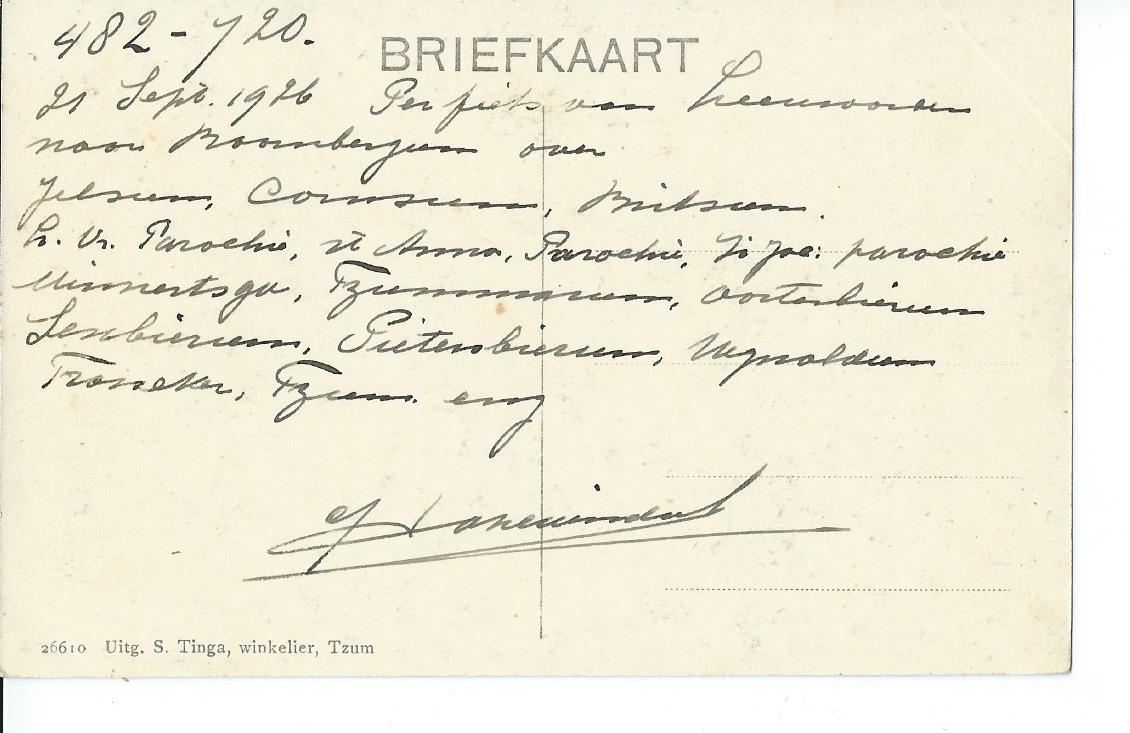 482-720.
BRIEFKAART
21 Sept. 1926 Per fiets van Leeuwarden
naar Boornbergum over
Jelsum, Cornsum, Britsum.
L. Vr. Parochie, St Anna, Parochie, St Jac: parochie
Minnertsga, Tzummarum, Oosterbierum
Sexbierum, Pietersbierum, Wynaldum
Franeker, Tzum. enz
26610 Uitg. S. Tinga, winkelier, Tzum